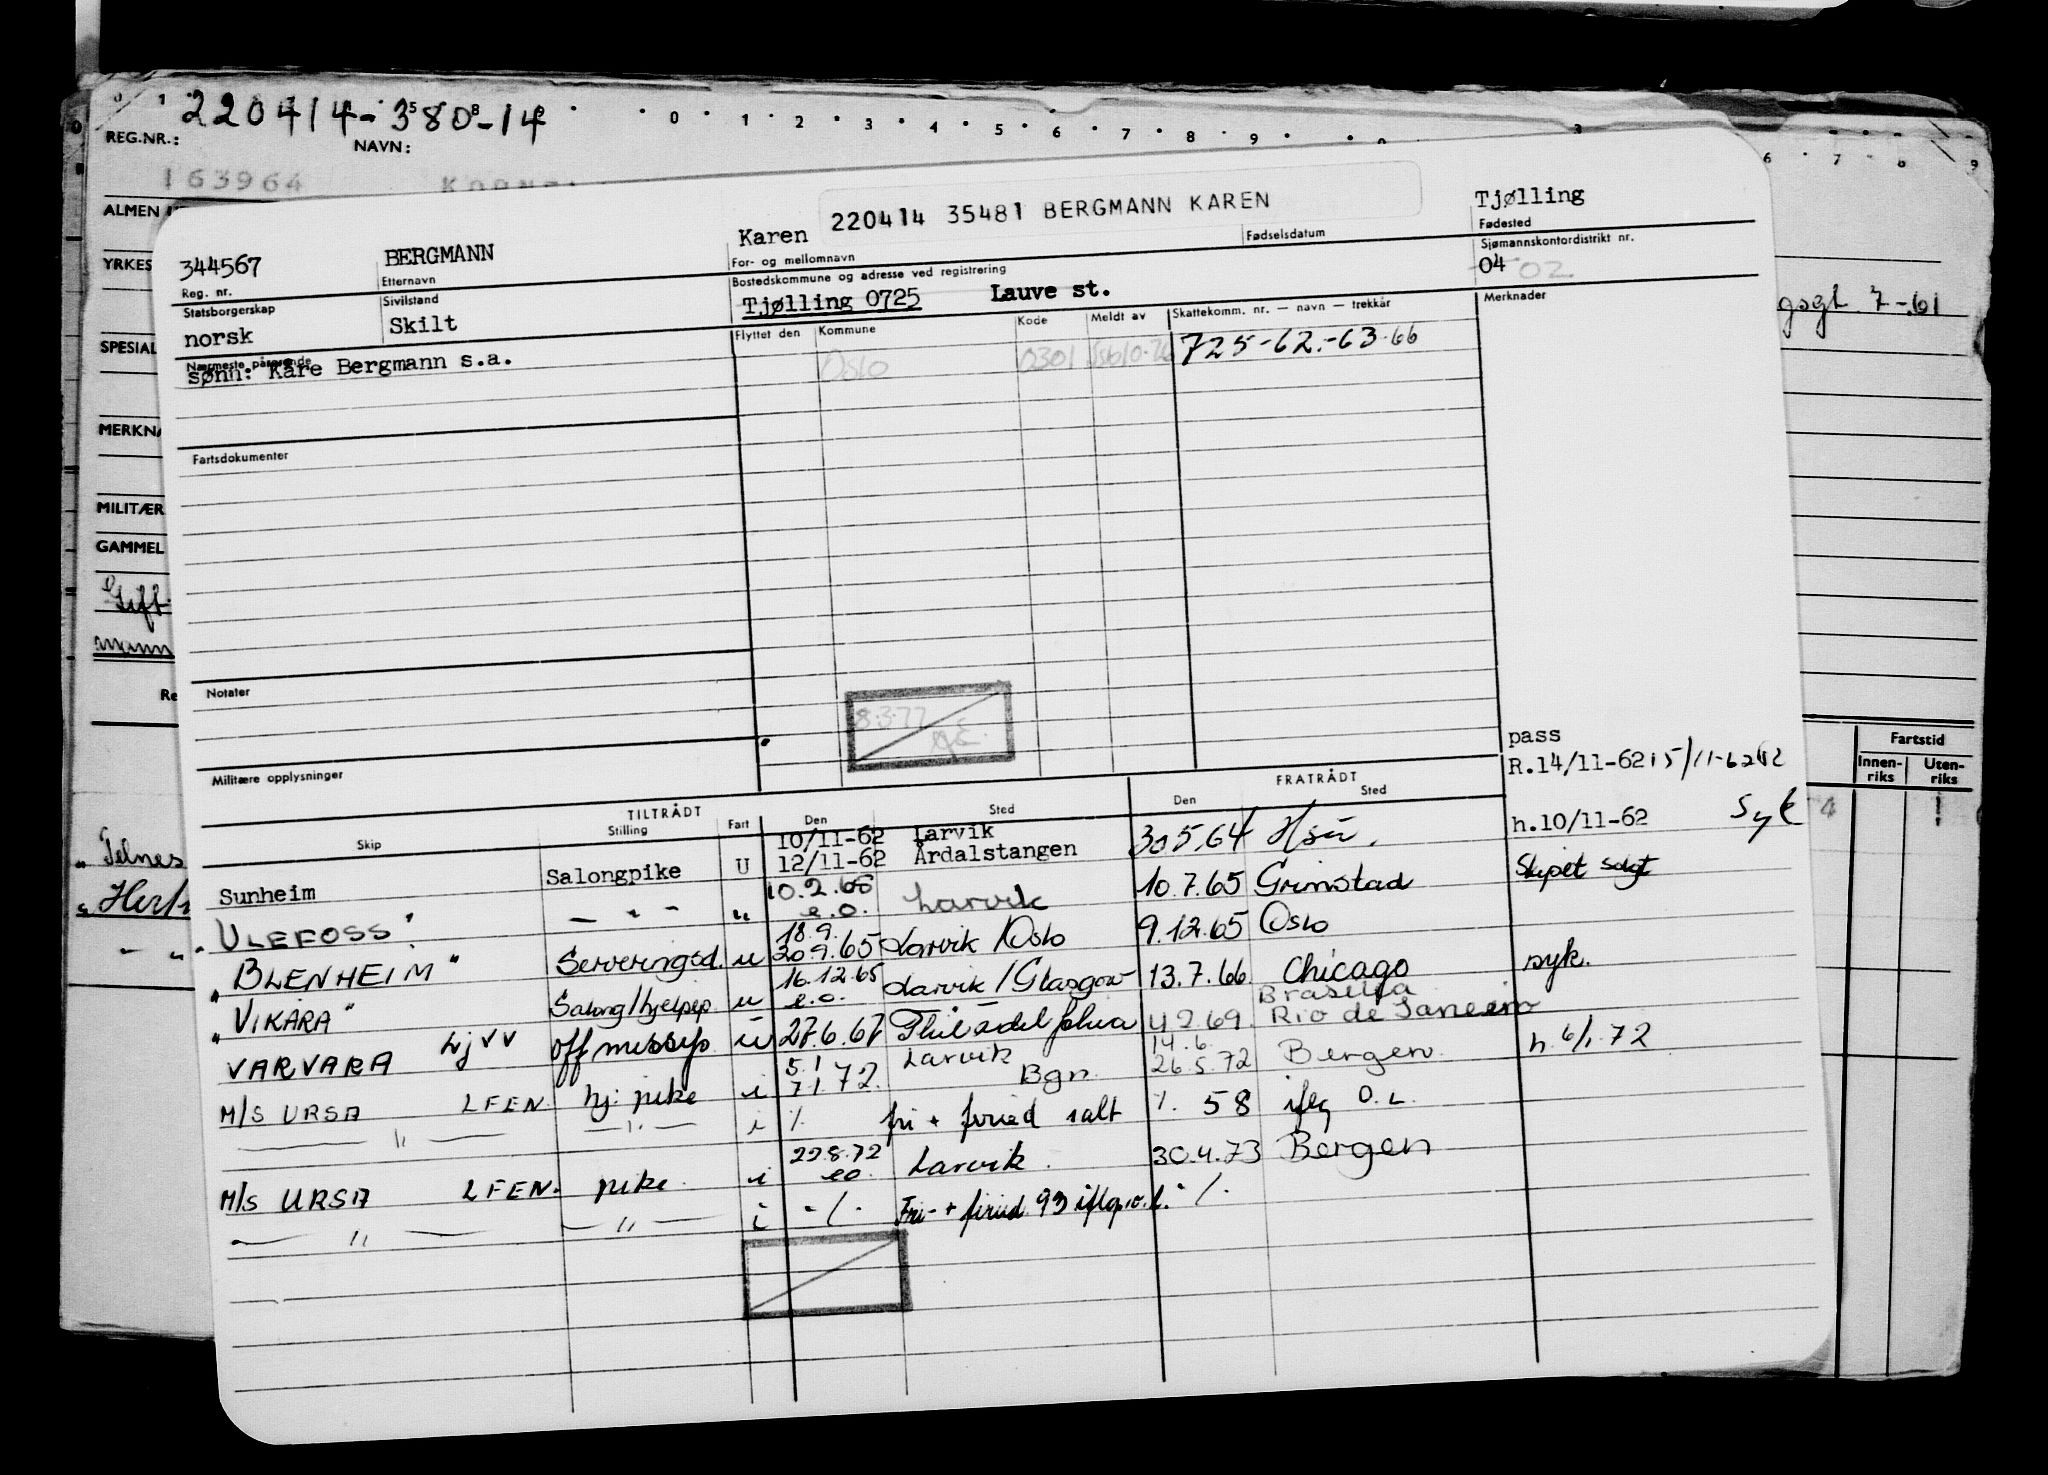 220414-380-14
0 1 2 3 4 5 6 7 8 9
REG.NR.: NAVN:
163964
ALMEN
YRKES
SPESIAL
MERKNA
MILITÆR
GAMMEL
Gift
mann
Re
" Telnes
" Herf
- " -
7-61
Fartstid
Innen-riks Uten-riks
220414 35481 BERGMANN KAREN
344567 BERGMANN Karen Tjølling
Reg. nr. Etternavn For- og mellomnavn Fødselsdatum Fødested
Statsborgerskap Sivilstand Bostedskommune og adresse ved registrering Sjømannskontordistrikt nr.
norsk Skilt Tjølling 0725 Lauve st. 04 02
Nærmeste pårørende Flyttet den Kommune Kode Meldt av Skattekomm. nr. — navn — trekkår Merknader
sønn: Kåre Bergmann s.a. Oslo 0301 725-62.-63-66
Fartsdokumenter
Notater
8.3.77
Militære opplysninger
pass
R.14/11-62 15/11-62
TILTRÅDT FRATRÅDT
Skip Stilling Fart Den Sted Den Sted
10/11-62 Larvik h.10/11-62 Syk
Sunheim Salongpike U 12/11-62 Årdalstangen 30.5.64
"ULEFOSS" - " - " 10.2.65 e.o. Larvik 10.7.65 Grimstad Skipet solgt
"BLENHEIM" Serveringsd. u 18.9. 20.9.65 Larvik/Oslo 9.12.65 Oslo
"VIKARA" Salong/hjelpep. u 16.12.65 e.o. Larvik/Glasgow 13.7.66 Chicago syk.
VARVARA LJVV off messep u 27.6.67 Philadelphia 4.2.69 Brasilia Rio de Janeiro
M/S URSA LFEN hj: pike i 5.1 7.1.72. Larvik Bgn. 14.6. 26.5.72 Bergen h. 6/1.72
— " — — " — i ./. fri + feried salt ./. 58 iflg O.L.
M/S URSA LFEN. pike i 22.8.72 eo. Larvik. 30.4.73 Bergen
— " — — " — i -/- Fri- + feried. 93 iflg.o.l. ./.